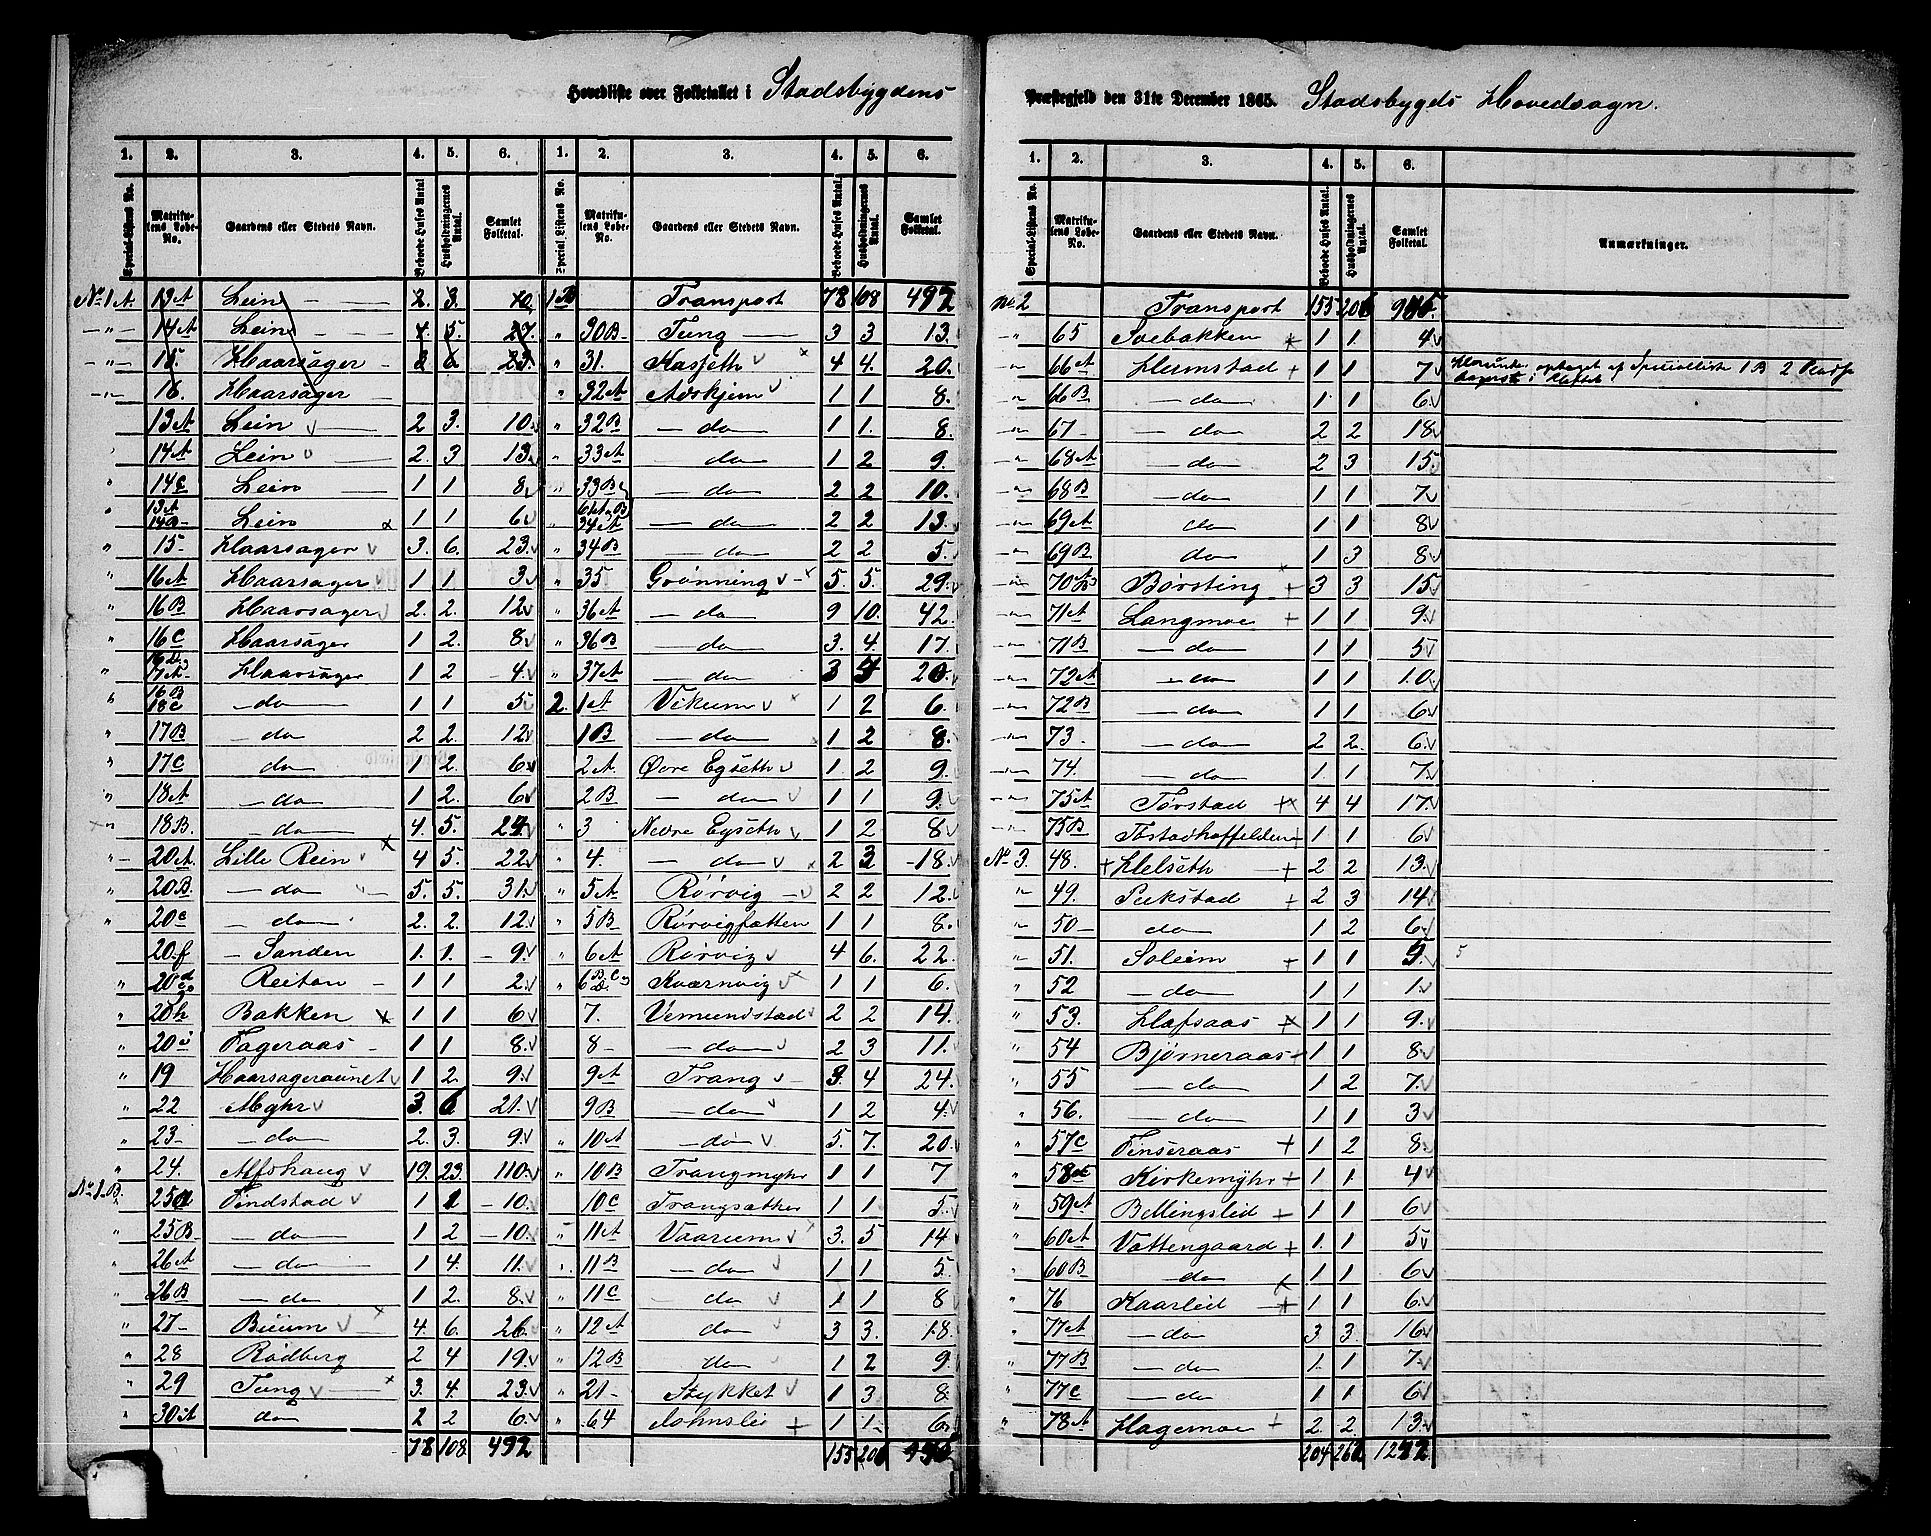 Hovedliste over Folketallet i Stadsbygdens
Præstegjeld den 31te December 1865. Stadsbygds Hovedsogn.
1. 2. 3. 4. 5. 6. 1. 2. 3. 4. 5. 6.
Special-Listens No. Matrikulens Løbe-No. Gaardens eller Stedets Navn. Beboede Huses Antal Husholdningernes Antal. Samlet Folketal. Special-Listens No. Matrikulens Løbe-No. Gaardens eller Stedets Navn. Beboede Huses Antal. Husholdningernes Antal. Samlet Folketal.
No. 1 A. 13 A Lein 2. 3. 1 B Transport 78 108 492
14 A Lein 5. 27. " 30 B Tung 3 3 13.
15. Haarsager 3 6 23. " 31. Kasseth 4 4. 20.
16. Haarsager 32 A Askjem 1 1 8.
13 A Lein 2 3. 10. " 32 B do 1 1. 8.
14 A Lein 2. 3 13. 33 A do 1 2 9.
" 14 C Lein 1 1 8 " 33 B do 2 2 10.
" 13 A 14 B Lein 1 1 6 " 34 A do 2 2 13.
" 15 Haarsager 3. 6. 23. " 34 B do 2 2 5.
" 16 A Haarsager 1 1 3. " 35 Grønning 5. 5. 29.
" 16 B Haarsager 2. 2. 12 " 36 A do 9 10. 42
" 16 C Haarsager 1 2. 8. " 36 B do 3. 4. 17.
" Haarsager 1 2 4. " 37 A do 3 4 20.
" 16 B 18 C do 1 1 5 2. 1 A Vikum 1 2 6.
" 17 B do 2 2. 12. 1 B do 1 2 8.
" 17 C do 1 2. 6 2 A Øvre Egseth 1. 2 9.
" 18 A do 1 2. 6. 2 B do 1 1 9.
" 18 B. do 4. 5. 24. " 3 Nedre Egseth 1 2 8
" 20 A. Lille Rein 4 5. 22. " 4. do 2 3 18.
" 20 B. do 5. 5. 31. " 5 A Rørvig 2 2 12.
" 20 C do 2. 2. 12. " 5 B Rørvigsætten 1 1 8.
20. f Sanden 1. 1. 9. " 6 A Rørvig 4 6. 22.
" Reitan 1 1 2. " Kværnvig 1 1 6.
" 20 h Bakken 1 1 6 7. Vemundstad 2 2 14.
" 20 i Fageraas 1 1 8. 8 do 2 3 11.
" 19 Haarsageraunet 1 2. 9. 9 A Trang 3. 4 24.
" 22 Myhr 3. 6 21. 9 B do 1 2 4.
" 23 do 2. 3. 9. " 10 A do 5. 7. 20.
" 24. Alfshaug 19. 23. 110. " 10 B Trangmyhr 1 1 7
No. 1. B. 25 A Findstad 1 1 10. 10 C Trangsætter 1 1 5.
" 25 B do 1 2 10. 11 A Vaarum 3. 5 14
" 26 A do 1 4. 11. 11 B do 1 1 5.
" 26 B do 1 2. 8. " 11 C do 1 1 8
" 27 Bium 4. 6. 26. " 12 A do 3 3. 18.
" 28 Rødberg 2 4 19. " 12 B do 1 2 9.
" 29 Tung 3. 4. 23. " 21 Stykket 1 3 8.
" 30 A do 2 2 6. " 64 Johnslie 1 1 6
78 108 492 155 206
1. 2. 3. 4. 5. 6.
Special-Listens No. Matrikulens Løbe-No. Gaardens eller Stedets Navn. Beboede Huses Antal. Husholdningernes Antal. Samlet Folketal. Anmærkninger.
No. 2 Transport 155 206
" 65 Soebakken 1 1. 4
" 66 A Hermstad 1 1. 7 1 B 2
" 66 B do 1 1 6.
" 67 do 2 2 18
" 68 A do 2 3 15.
" 68 B do 1 1 7.
" 69 A do 1 1 8
" 69 B do 1 3 8.
" 70 Børsting 3 3 15
" 71 A Langmoe 1 1 9.
" 71 B do 1 1 5
" 72 A do 1 1 10.
" 72 B do 1 1 6
" 73 do 2 2. 6.
" 74. do 1. 1 7.
" 75 A Tørstad 4 4 17.
" 75 B 1 1 6.
No. 3. 48. Helseth 2 2 13.
" 49. Pukstad 2 3 14
" 50 do 1 2 6.
" 51. Soleim 1 1 9. 5
" 52 do 1 1 1.
" 53. Hafsaas 1 1 9.
" 54 Bjørneraas 1 1 8
" 55 do 1 2 7.
" 56. do 1 1 3
" 57 C Finseraas 1 2 8
" 58 Kirkemyhr 1 1. 4
" 59 A Bellingslid 1 1 6
" 60 A Vattengaard 1. 1 5
" 60 B do 1 1 6
" 76 Kaarlid 1 1 6
" 77 A do 3. 3. 16
" 77 B do 1. 1 7.
" 77 C do 1 1 6.
" 78 A Hagemoe 2. 2. 13.
204 262